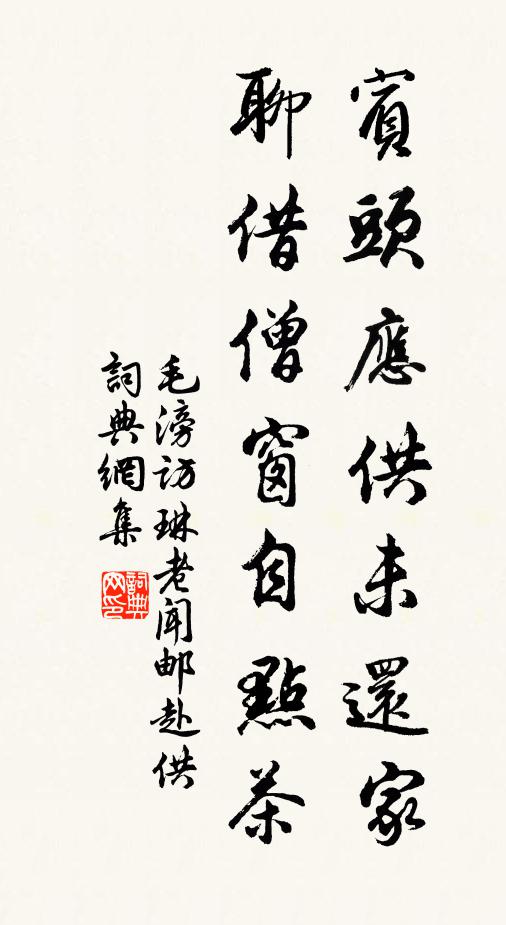 賓頭應供未還家
聊借僧窗自點茶
毛滂访琳老闻邮赴供
詞典網集
詞典网印